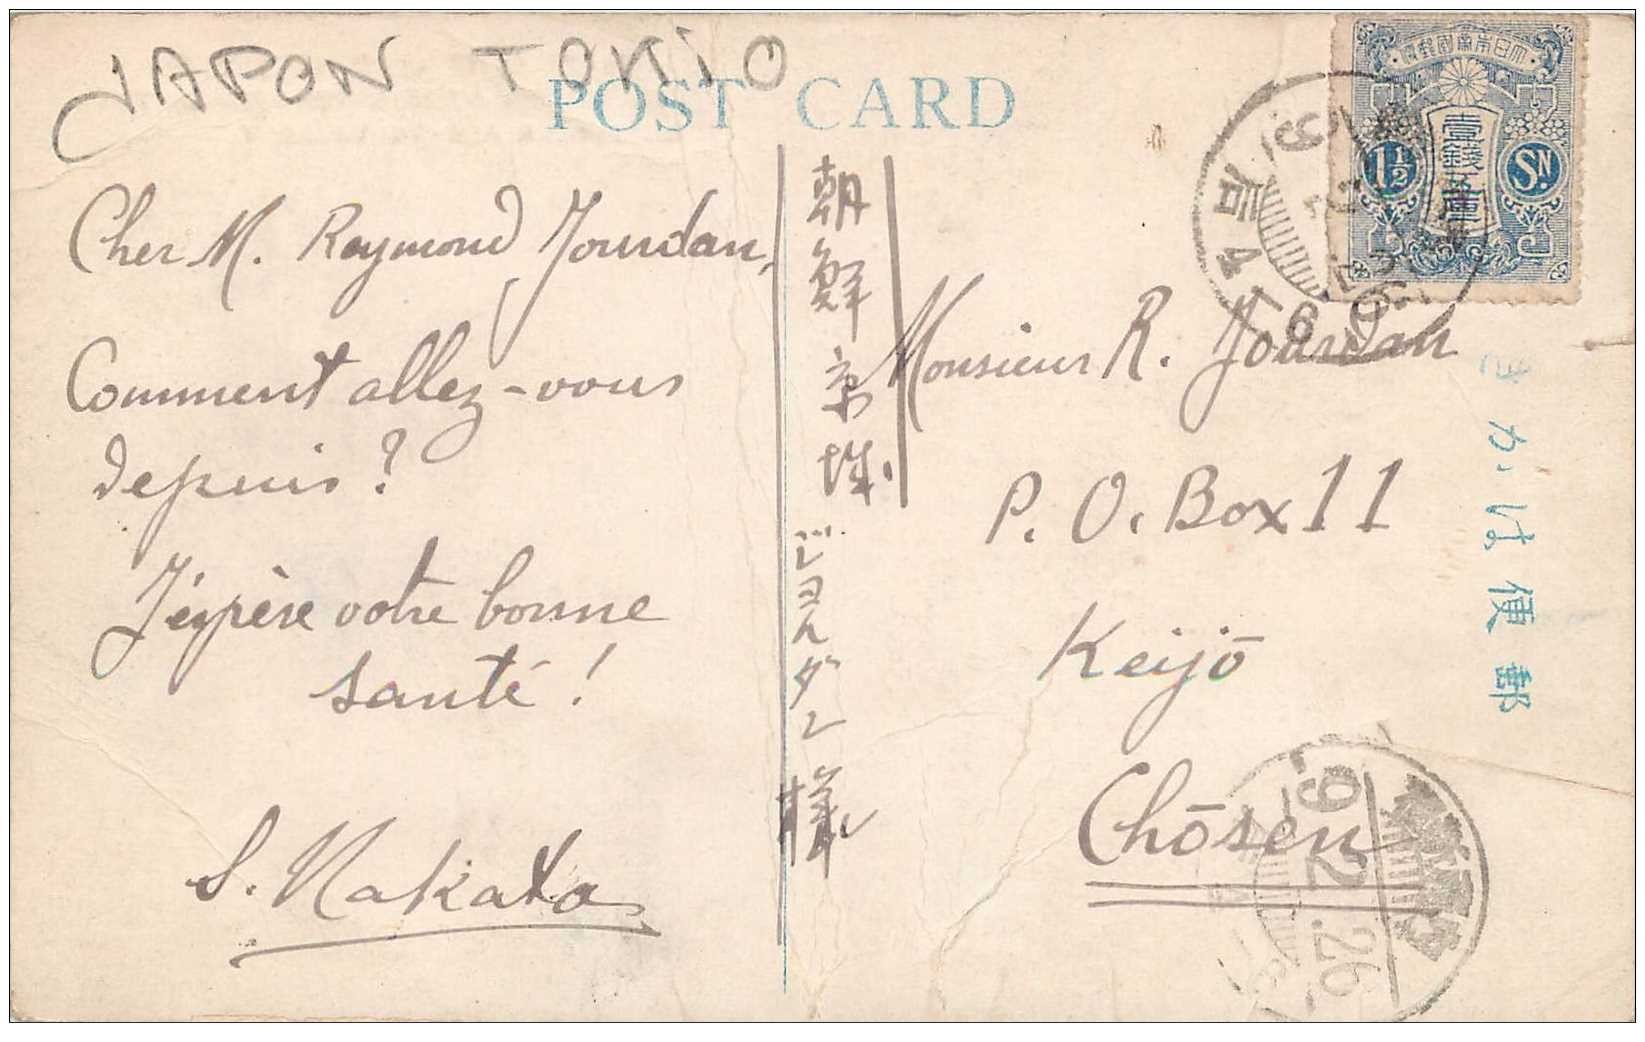 JAPON TOKIO
POST CARD
Cher M. Raymond Jourdan,
Comment allez-vous
depuis?
J'éspère votre bonne
santé!
S. Nakata
朝鮮京城
ジョルダン様
Monsieur R. Jourdan
P. O. Box 11
Keijō
Chōsen
大日本帝國郵便
壹錢五厘
1½
SN.
きかは便郵
9.2.26